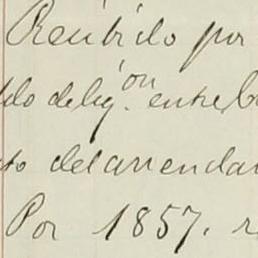 Recibido por
ldo de lig.on entre
to del arrenda
Por 1857. r